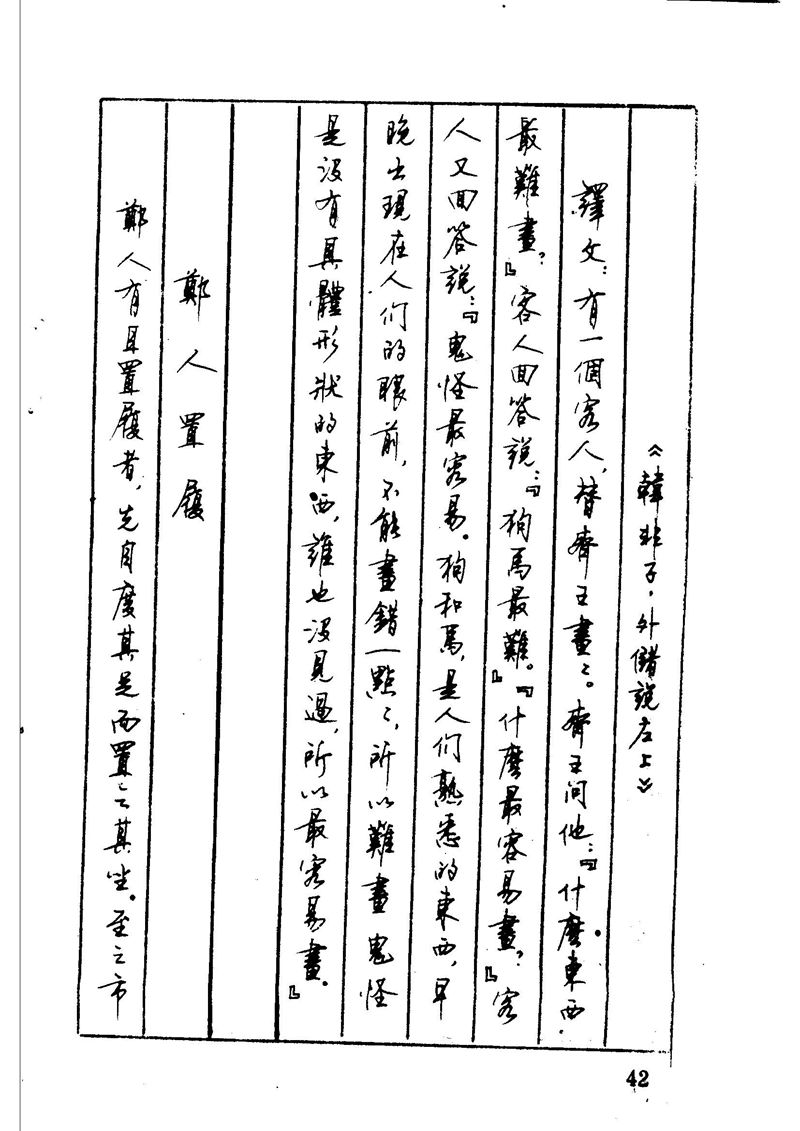 《韓非子·外儲說左上》
譯文：有一個客人，替齊王畫畫。齊王問他：『什麼東西
最難畫？』客人回答說：『狗馬最難。』『什麼最容易畫？』客
人又回答說：『鬼怪最容易。狗和馬，是人们熟悉的東西，早
晚出現在人们的眼前，不能畫錯一點點，所以難畫鬼怪
是沒有具體形狀的東西，誰也沒見過，所以最容易畫。』
鄭人置履
鄭人有且置履者，先自度其足而置之其坐。至之市
42